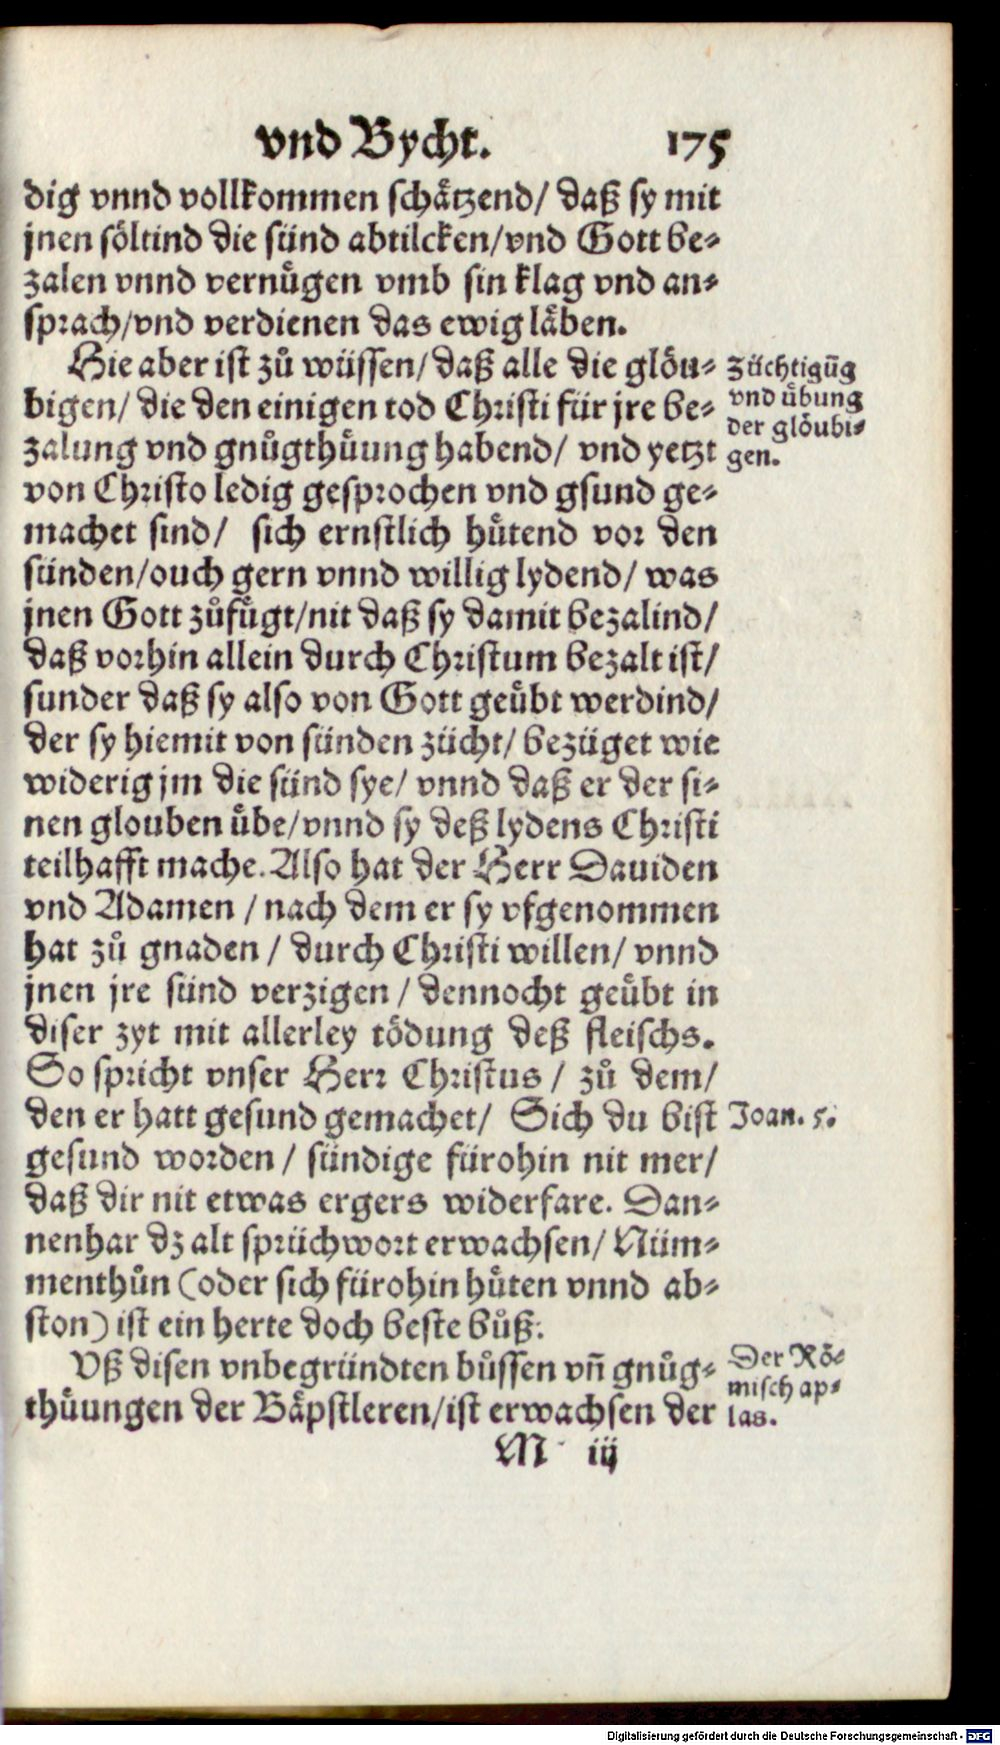 vnd Bycht. 175
dig vnnd vollkommen schåtzend/ daß sy mit
jnen söltind die sünd abtilcken/vnd Gott be⸗
zalen vnnd vernuͤgen vmb sin klag vnd an⸗
sprach/vnd verdienen das ewig låben.
Hie aber ist zuͦ wüssen/ daß alle die glöu⸗
bigen/ die den einigen tod Christi für jre be⸗
zalung vnd gnuͦgthuͤung habend/ vnd yetzt
von Christo ledig gesprochen vnd gsund ge⸗
machet sind/ sich ernstlich huͤtend vor den
sünden/ouch gern vnnd willig lydend/ was
jnen Gott zuͦfuͤgt/nit daß sy damit bezalind/
daß vorhin allein durch Christum bezalt ist/
sunder daß sy also von Gott geuͤbt werdind/
der sy hiemit von sünden zücht/ bezüget wie
widerig jm die sünd sye/ vnnd daß er der si⸗
nen glouben uͤbe/vnnd sy deß lydens Christi
teilhafft mache. Also hat der Herr Dauiden
vnd Adamen / nach dem er sy vfgenommen
hat zuͦ gnaden / durch Christi willen/ vnnd
jnen jre sünd verzigen / dennocht geuͤbt in
diser zyt mit allerley tödung deß fleischs.
So spricht vnser Herr Christus / zuͦ dem/
den er hatt gesund gemachet/ Sich du bist
gesund worden / sündige fürohin nit mer/
daß dir nit etwas ergers widerfare. Dan⸗
nenhar dz alt sprüchwort erwachsen/ Nüm⸗
menthuͦn (oder sich fürohin huͤten vnnd ab⸗
ston) ist ein herte doch beste buͦß.
Vß disen vnbegründten buͦssen vñ gnuͦg⸗
thuͤungen der Båpstleren/ist erwachsen der
M iij
Züchtigūg
vnd uͤbung
der glöubi⸗
gen.
Joan. 5.
Der Rö⸗
misch ap⸗
las.
Digitalisierung gefördert durch die Deutsche Forschungsgemeinschaft - DFG